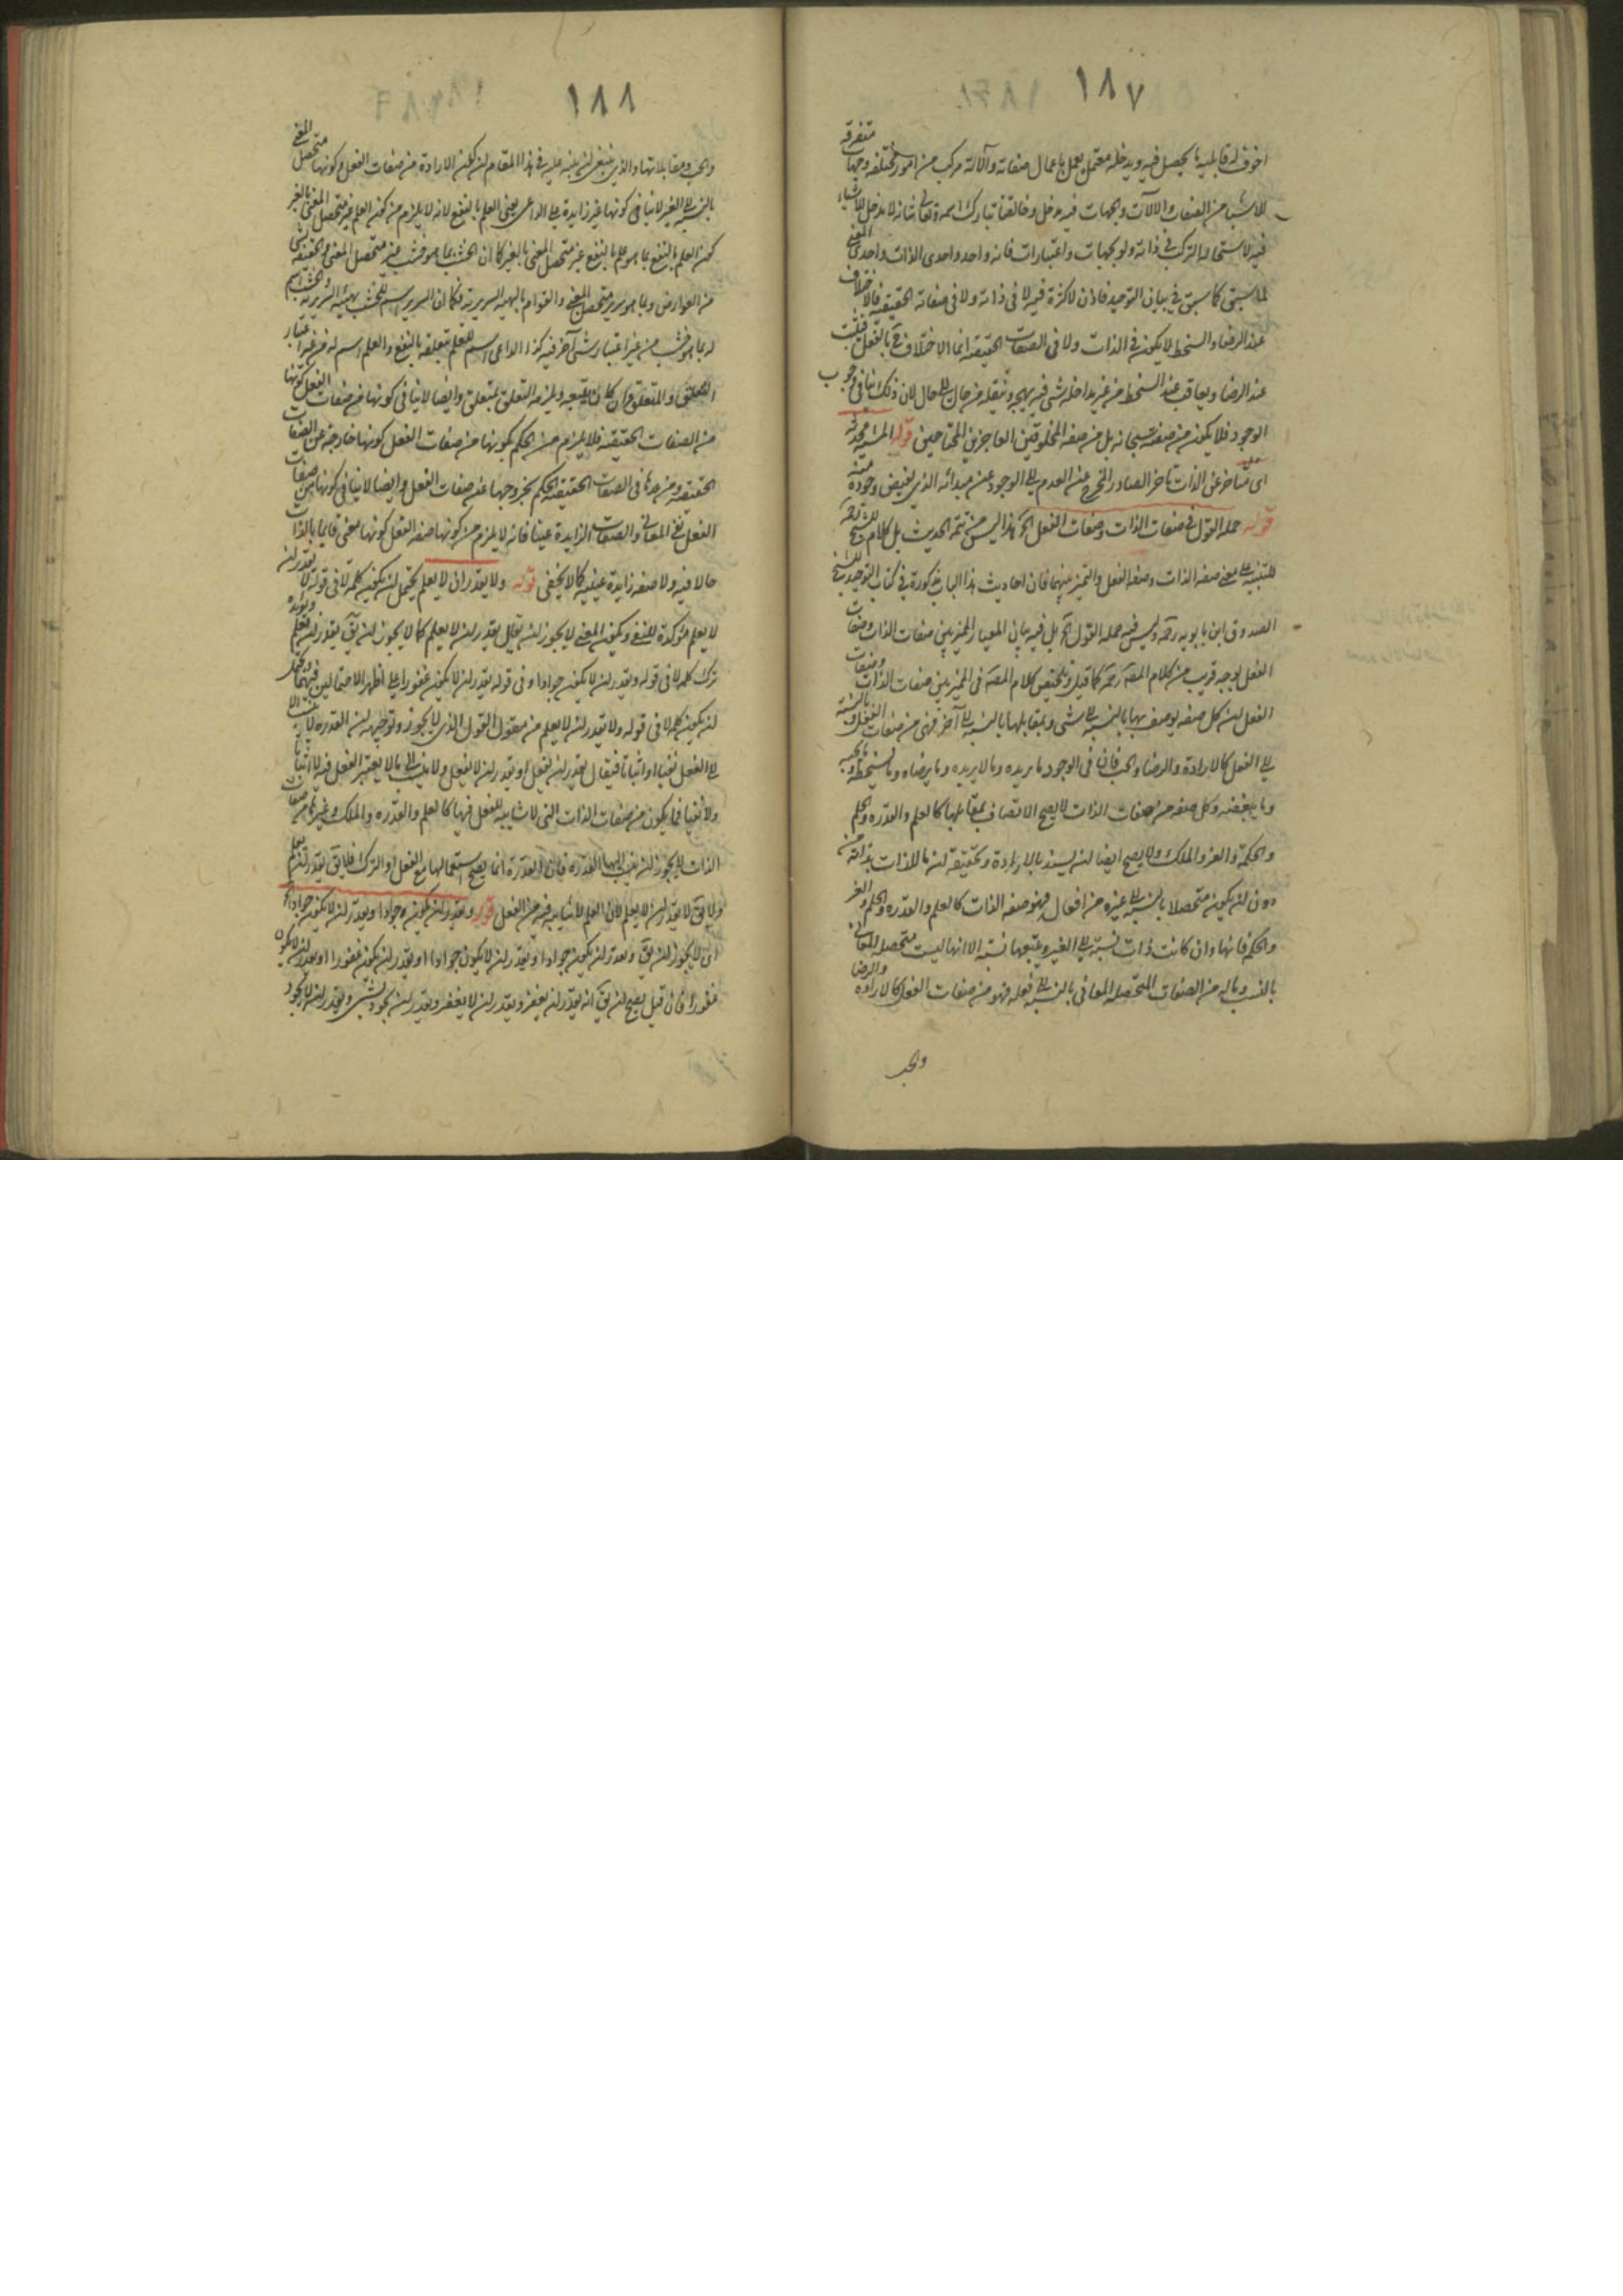 ١٨٧
اخوف له قابلية ما يحصل فيه ويدخله معتمل يعمل باعمال صفاته وآلاته مركب من امور مختلفه وجهات متفرقه
للاشياء من الصفات والآلات والجهات فيه مدخل وخالقنا تبارك اسمه وتعالى شانه لا مدخل للاشياء
فيه لاستحالة التركب في ذاته ولو بجهات واعتبارات فانه واحد واحدي الذات واحدي المعنى
لما سبق كما سبق في بيان التوحيد فاذن لا كثرة فيه لا في ذاته ولا في صفاته الحقيقية فالاختلاف
عند الرضا والسخط لا يكون في الذات ولا في الصفات الحقيقية انما الاختلاف في الفعل فيثيب
عند الرضا ويعاقب عند السخط من غير مداخلة شي فيه يهيجه وينقله من حال الى حال لان ذلك ينافي وجوب
الوجود فلا يكون من صفته سبحانه بل من صفه المخلوقين العاجزين المحتاجين قوله المشية محدثه
اى متاخر عن الذات تاخر الصادر المخرج عن العدم الى الوجود عن مبدائه الذي يفيض وجوده منه
قوله جمله القول في صفات الذات وصفات الفعل الخ هذا ليس من تتمه الحديث بل كلام للشيخ رحمه
للتنبيه على معنى صفه الذات وصفه الفعل والتميز بينهما فان احاديث هذا الباب مذكورة في كتاب التوحيد للشيخ
الصدوق ابن بابويه رحمه وليس فيه جمله القول الخ بل فيه بيان المعيار المميز بين صفات الذات وصفات
الفعل بوجه قريب من كلام المصنف رحمه كما قيل وتلخيص كلام المصنف في المميز بين صفات الذات وصفات
الفعل ان كل صفه يوصف بها بالنسبه الى شي وبمقابلها بالنسبه الى آخر فهى من صفات الفعل بالنسبه
الى الفعل كالارادة والرضا والحب فان في الوجود ما يريده وما لا يريده وما يرضاه وما يسخطه وما يحبه
وما يبغضه وكل صفه من صفات الذات لا يصح الاتصاف بمقابلها كالعلم والقدره والحلم
والحكمة والعز والملك ولا يصح ايضا ان يسند بالارادة وتحقيقه ان ما للذات بذاته من
دون ان يكون متحصلا بالنسبه الى غيره من افعاله فهو صفه الذات كالعلم والقدره والحلم والعز
والحكم فانها وان كانت ذات نسبة الى الغير ويتبعها نسبة الا انها ليست متحصله المعانى
بالنسب وماله من الصفات المتحصله المعاني بالنسبه الى فعله فهو من صفات الفعل كالارادة والرضا
والحب
١٨٨
والحب ومقابلاتها والذي ينبغي ان ينبه عليه في هذا المقام ان كون الارادة من صفات الفعل وكونها متحصل المعنى
بالنسبه الى الغير لا ينافي كونها غير زايدة على الداعى يعنى العلم بالنفع لانه لا يلزم من كون العلم غير متحصل المعنى بالغير
كون العلم بالنفع بما هو علم بالنفع غير متحصل المعنى بالغير كما ان الخشب بما هو خشب غير متحصل المعنى والحقيقة بشي
من العوارض وبما هو سرير متحصل المعنى والقوام بالهيه السريريه فكما ان السرير اسم للخشب بهيئه السريريه والخشب اسم
له بما هو خشب من غير اعتبار شي آخر فيه كذا الداعى اسم للعلم بتعلقه بالنفع والعلم اسم له من غير اعتبار
التعلق والمتعلق وان كان يتبعه ويلزمه التعلق بمتعلق وايضا لا ينافي كونها من صفات الفعل كونها
من الصفات الحقيقية فلا يلزم من الحكم بكونها من صفات الفعل كونها خارجه عن الصفات
الحقيقيه ومن عدها في الصفات الحقيقيه الحكم بخروجها عن صفات الفعل وايضا لا ينافى كونها من صفات
الفعل نفي المعاني والصفات الزايدة عينا فانه لا يلزم من كونها صفه الفعل كونها معنى قايما بالذات
حالا فيه ولا صفه زايدة عينيه كما لا يخفى قوله ولا يقدر ان لا يعلم يحتمل ان يكون كلمة لا في قوله لا يقدر ان
لا يعلم مؤكدة للنفي ويكون المعنى لا يجوز ان يقال يقدر ان لا يعلم كما لا يجوز ان يق يقدر ان يعلم ويؤيده
ترك كلمه لا في قوله ويقدر ان لا يكون جوادا وفي قوله يقدر ان لا يكون غفورا على اظهر الاحتمالين فيهما ويحتمل
ان يكون كلمه لا في قوله ولا يقدر ان لا يعلم من مقول القول الذي لا يجوز وتوجيهه ان القدره لا ينسب الا
الى الفعل نفيا او اثباتا فيقال يقدر ان يفعل او يقدر ان لا يفعل ولا ينسب الى ما لا يعتبر الفعل فيه لا اثباتا
ولا نفيا فما يكون من صفات الذات التى لا شايبه للفعل فيها كالعلم والقدره والملك وغيرها من صفات
الذات لا يجوز ان ينسب اليها القدره فان القدرة انما يصح استعمالها مع الفعل او الترك فلا يق يقدر ان يعلم
ولا يق لا يقدر ان لا يعلم لان العلم لا شايبه فيه من الفعل قوله ويقدر ان يكون جوادا ويقدر ان لا يكون جوادا الخ
اى لا يجوز ان يق ويقدر ان يكون جوادا ويقدر ان لا يكون جوادا او يقدر ان يكون غفورا او يقدر ان لا يكون
غفورا فان قيل يصح ان يق انه يقدر ان يغفر ويقدر ان لا يغفر ويقدر ان يجود بشي ويقدر ان لا يجود